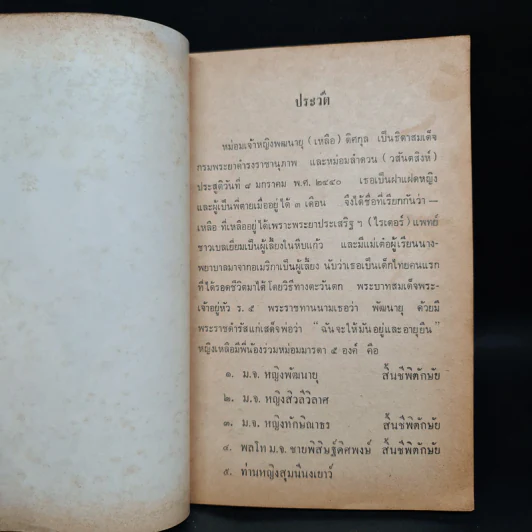 ประวัติ
หม่อมเจ้าหญิงพัฒนายุ (เหลือ) ดิศกุล เป็นธิดาสมเด็จ
กรมพระยาดำรงราชานุภาพ และหม่อมลำดวน (วสันตสิงห์)
ประสูติวันที่ ๘ มกราคม พ.ศ. ๒๔๔๐ เธอเป็นฝาแฝดหญิง
และผู้เป็นพี่ตายเมื่ออยู่ได้ ๓ เดือน จึงได้ชื่อที่เรียกกันว่า —
เหลือ ที่เหลืออยู่ได้เพราะพระยาประเสริฐ ฯ (ไรเตอร์) แพทย์
ชาวเบลเยี่ยมเป็นผู้เลี้ยงในหีบแก้ว และมีแม่เต๋อผู้เรียนนาง-
พยาบาลมาจากอเมริกาเป็นผู้เลี้ยง นับว่าเธอเป็นเด็กไทยคนแรก
ที่ได้รอดชีวิตมาได้โดยวิธีทางตะวันตก พระบาทสมเด็จพระ-
เจ้าอยู่หัว ร. ๕ พระราชทานนามเธอว่า พัฒนายุ ด้วยมี
พระราชดำรัสแก่เสด็จพ่อว่า “ฉันจะให้มันอยู่และอายุยืน”
หญิงเหลือมีพี่น้องร่วมหม่อมมารดา ๕ องค์ คือ
๑. ม.จ. หญิงพัฒนายุ สิ้นชีพิตักษัย
๒. ม.จ. หญิงสิวลีวิลาศ
๓. ม.จ. หญิงทักษิณาธร สิ้นชีพิตักษัย
๔. พลโท ม.จ. ชายพิสิษฐ์ดิศพงษ์ สิ้นชีพิตักษัย
๕. ท่านหญิงสุมนีนงเยาว์